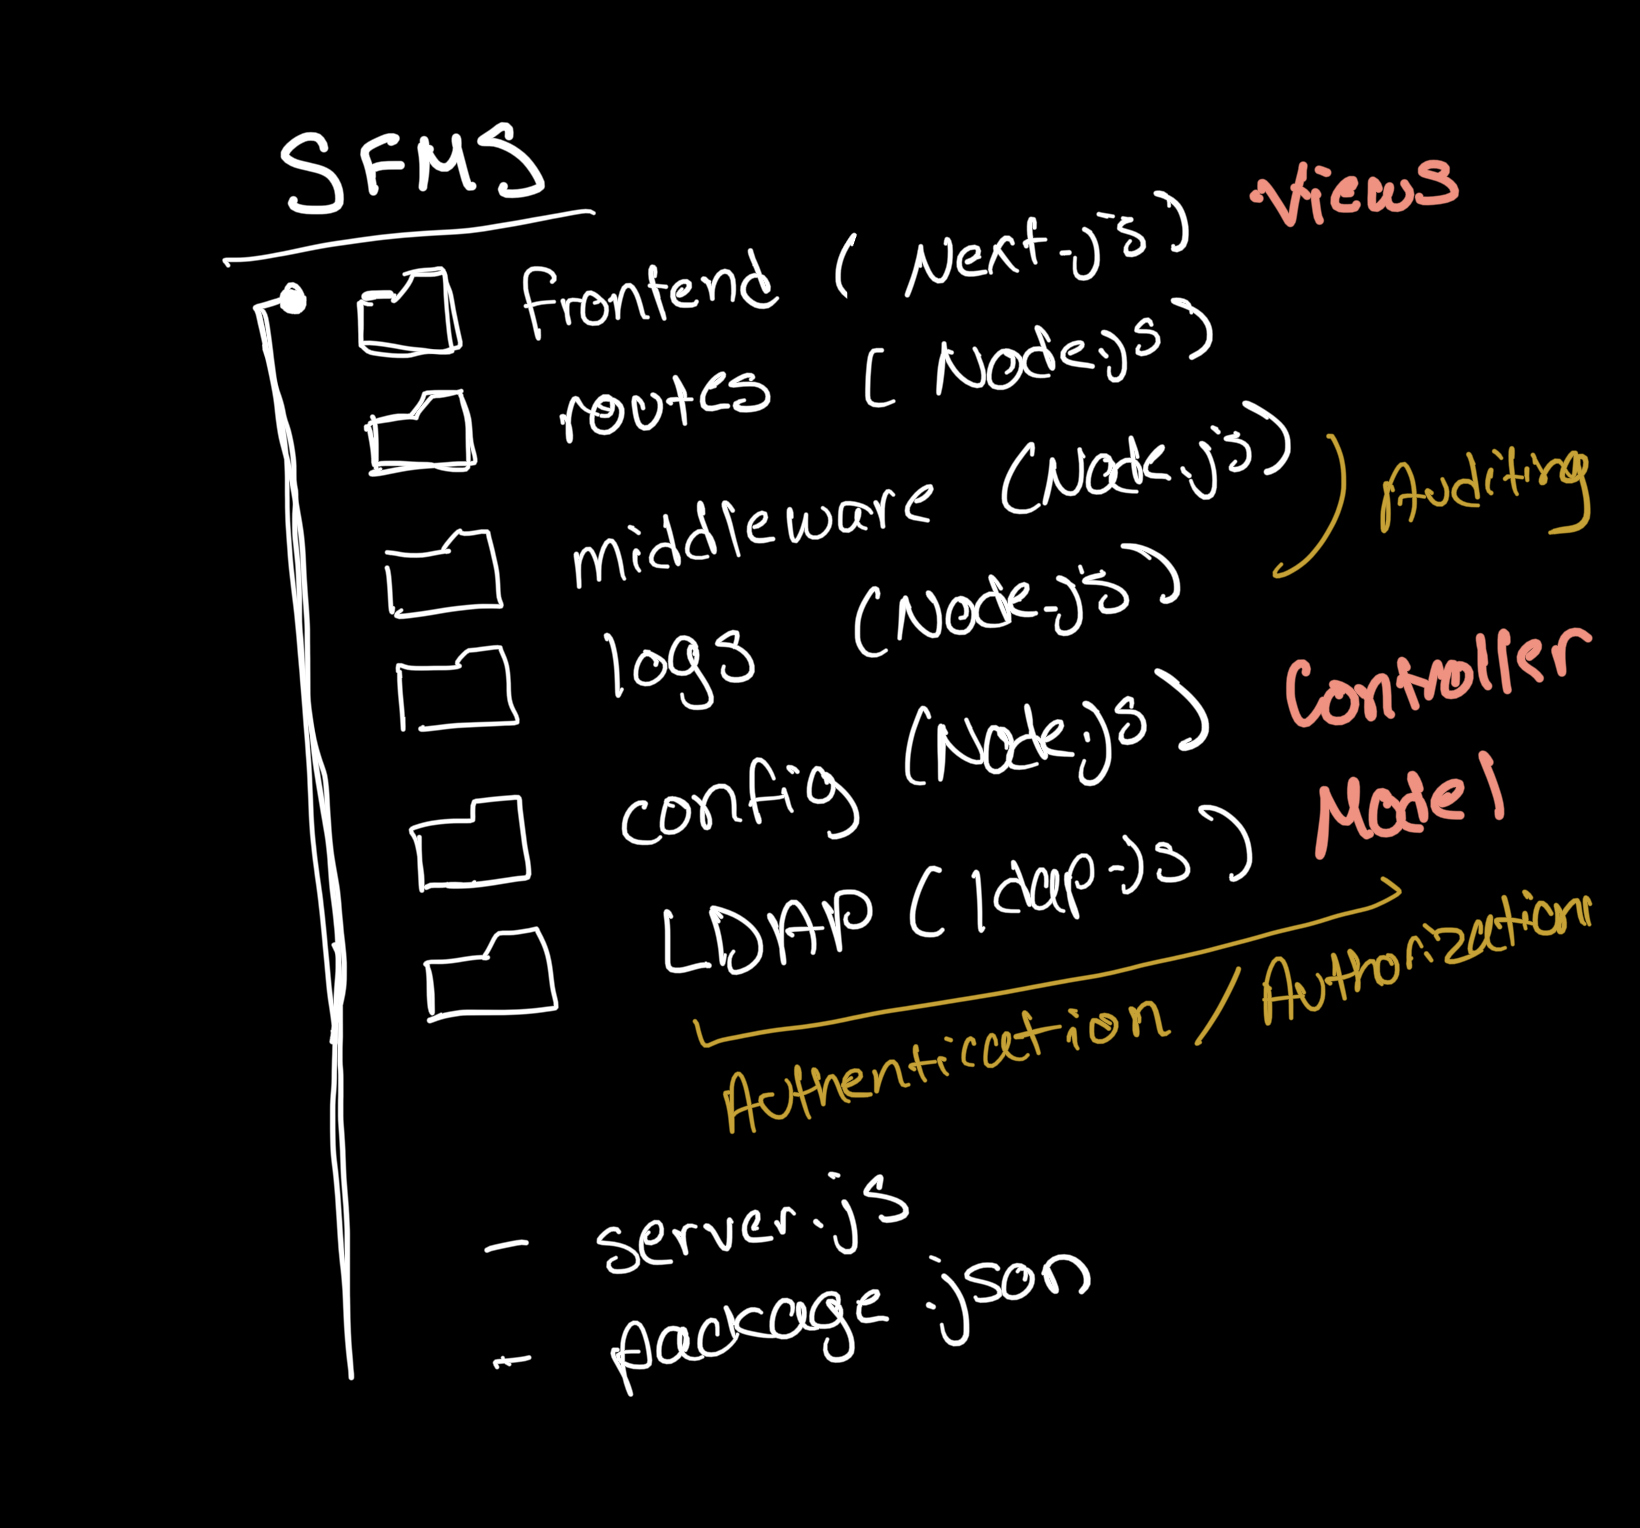 SFMS
frontend (Next.js) Views
routes (Node.js)
middleware (Node.js) Auditing
logs (Node.js)
config (Node.js) Controller
LDAP (ldap.js) Model
Authentication / Authorization
- server.js
- package.json